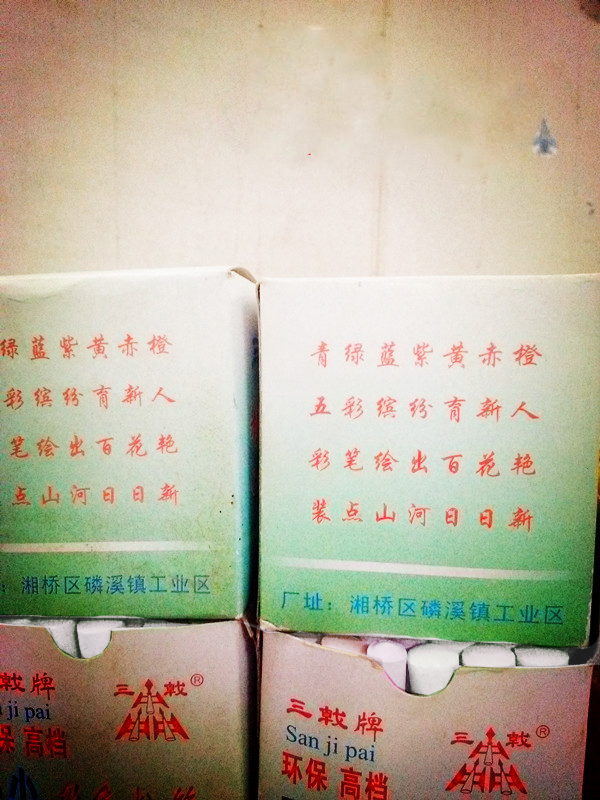 绿蓝紫黄赤橙
彩缤纷育新人
笔绘出百花艳
点山河日日新
：湘桥区磷溪镇工业区
青绿蓝紫黄赤橙
五彩缤纷育新人
彩笔绘出百花艳
装点山河日日新
厂址：湘桥区磷溪镇工业区
戟牌
ji pai
保 高档
三 戟®
三戟牌
San ji pai
环保 高档
三 戟®